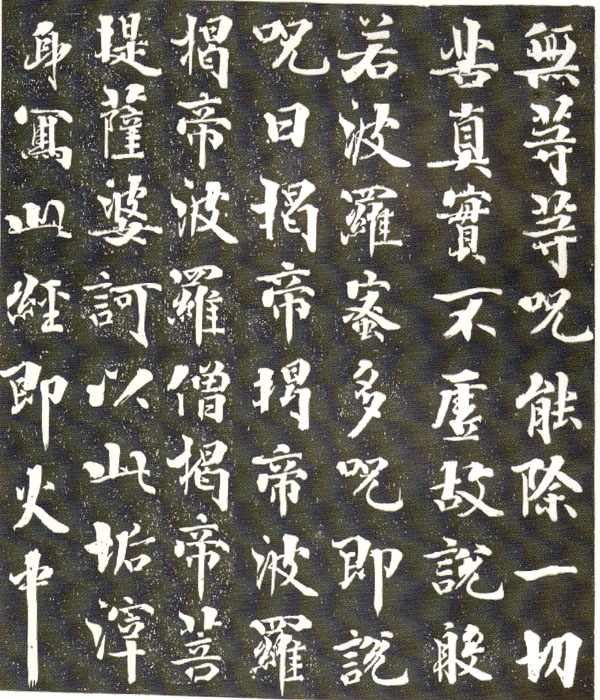 無等等呪能除一切
苦真實不虛故說般
若波羅蜜多呪即說
呪曰揭帝揭帝波羅
揭帝波羅僧揭帝菩
提薩婆訶以此垢滓
身寫此經即火中